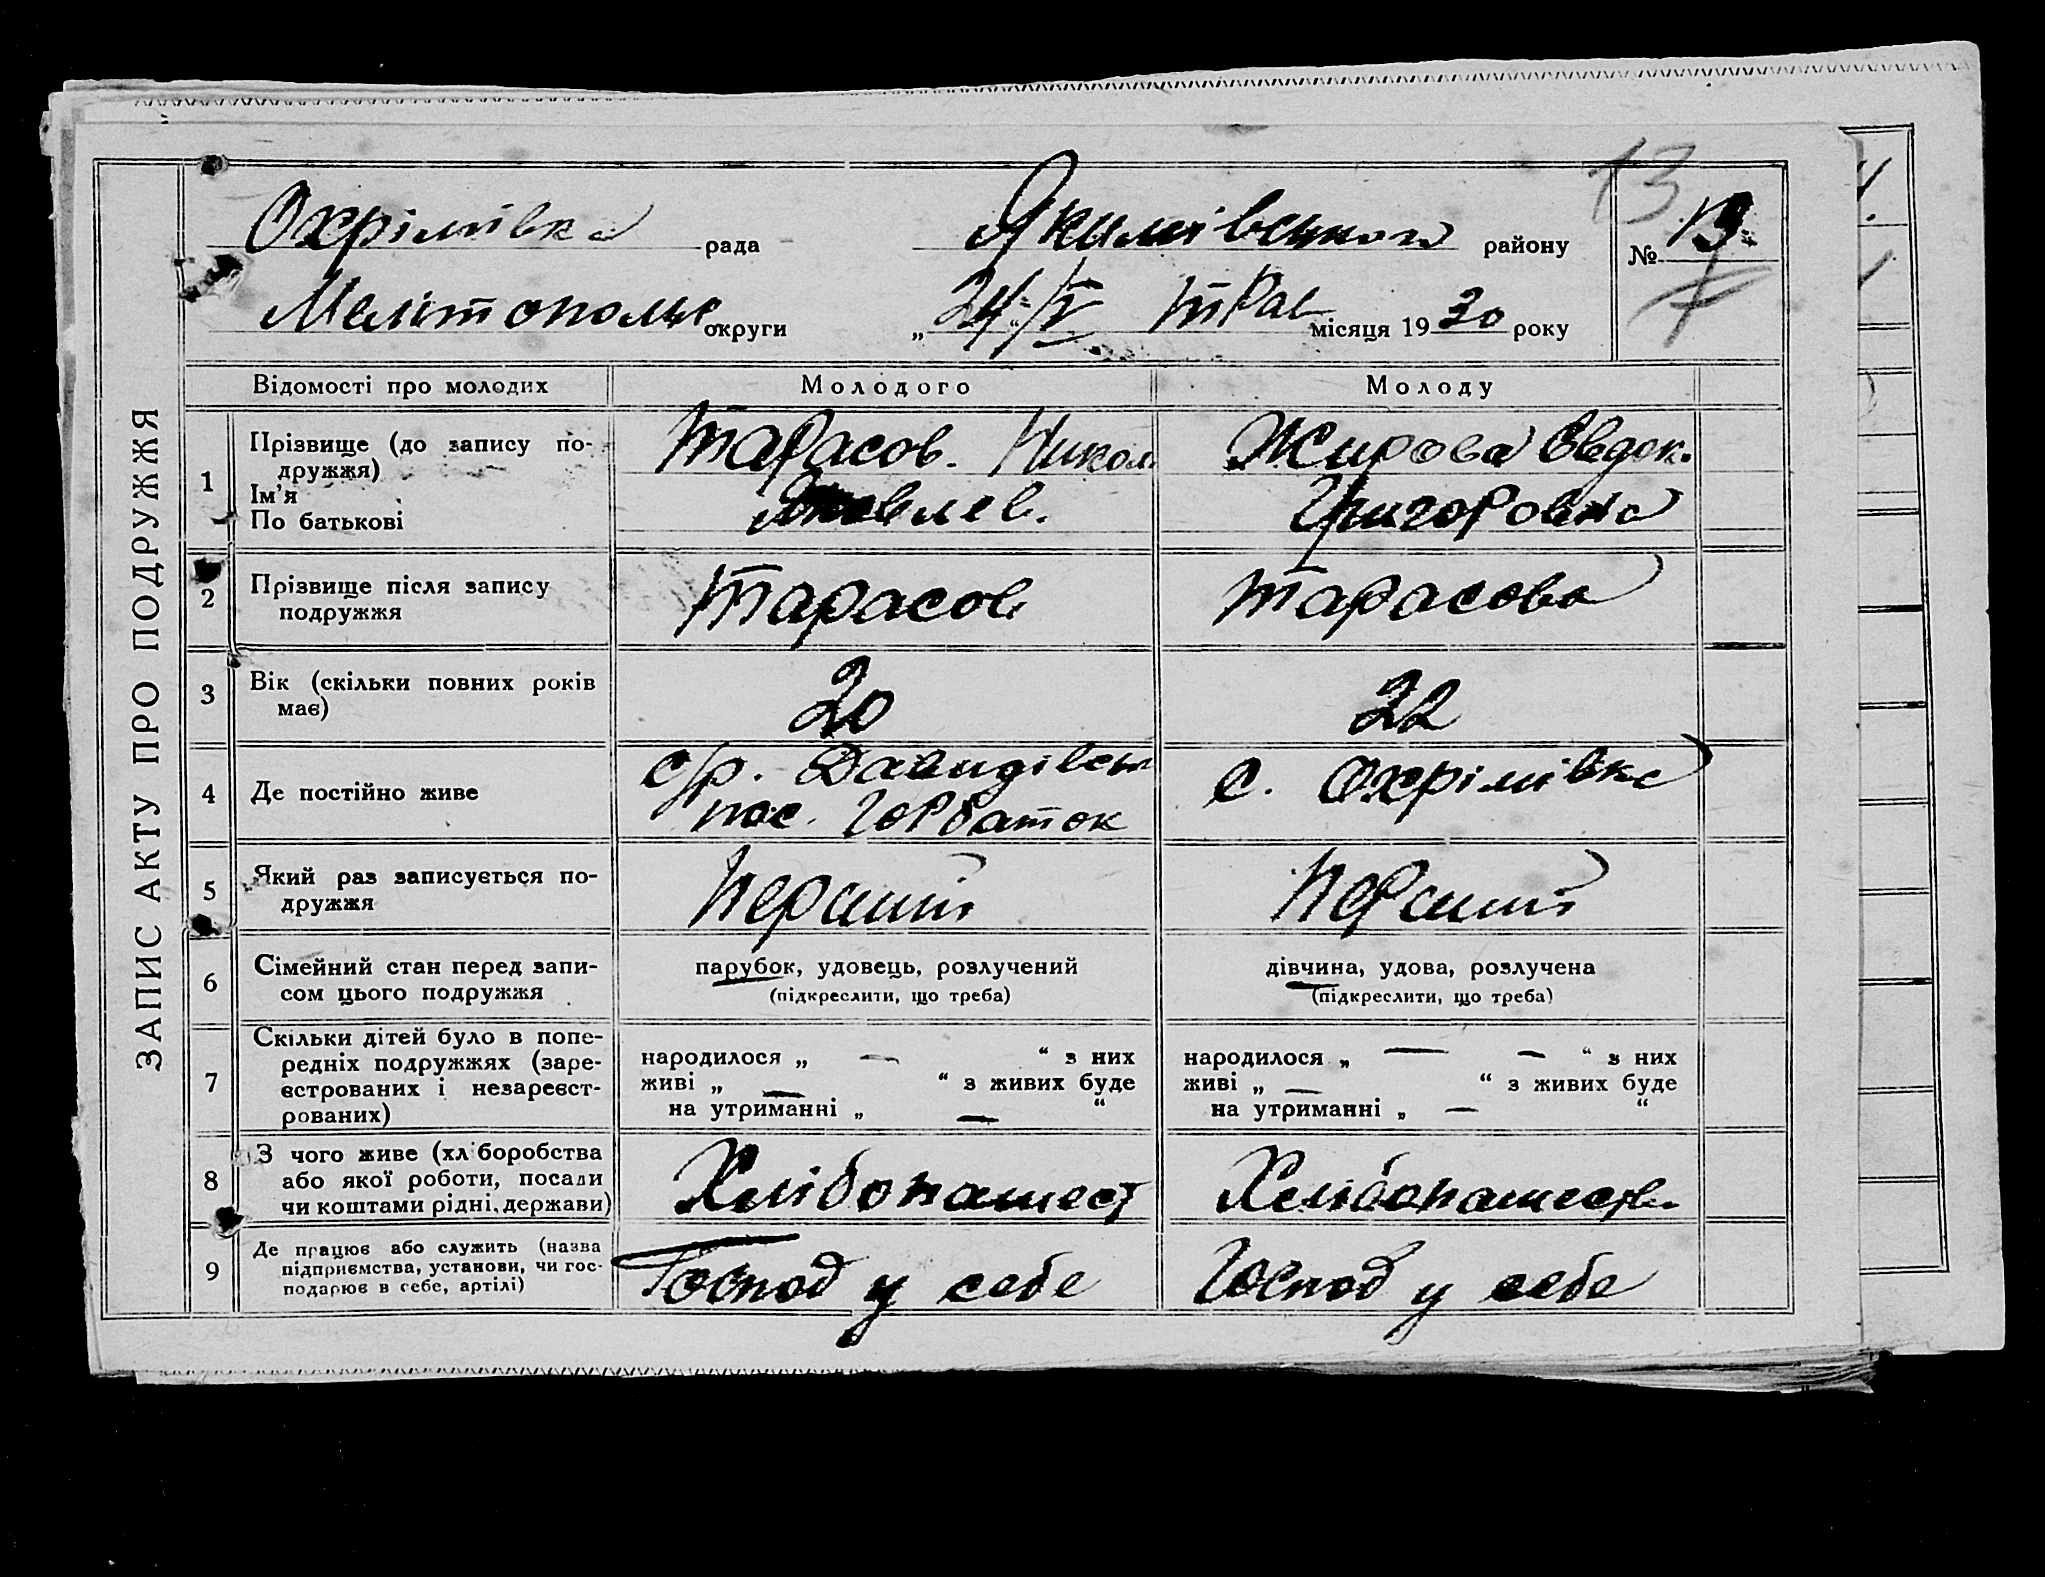 ЗАПИС АКТУ ПРО ПОДРУЖЖЯ
13
Охрімівка рада Якимівського району № 13
Мелітопольс округи „24/V“ трав місяця 1930 року
Відомості про молодих Молодого Молоду
1 Прізвище (до запису по-
дружжя)
Ім’я
По батькові
Тарасов. Никол
Яковлев.
Жирова Евдок.
Григоровна
2 Прізвище після запису
подружжя
Тарасов
Тарасова
3 Вік (скільки повних років
має)
20
22
4 Де постійно живе
с/р. Давидівськ
пос. Горбаток
с. Охрімівка
5 Який раз записується по-
дружжя
Перший
Перший
6 Сімейний стан перед запи-
сом цього подружжя
парубок, удовець, розлучений
(підкреслити, що треба)
дівчина, удова, розлучена
(підкреслити, що треба)
7 Скільки дітей було в попе-
редніх подружжях (заре-
єстрованих і незареєст-
рованих)
народилося „ — “ з них
живі „ — “ з живих буде
на утриманні „ — “
народилося „ — — “ з них
живі „ — “ з живих буде
на утриманні „ — “
8 З чого живе (хліборобства
або якої роботи, посади
чи коштами рідні, держави)
Хлібопашест
Хлібопашеств.
9 Де працює або служить (назва
підприємства, установи, чи гос-
подарює в себе, артілі)
Господ у себе
Господ у себе